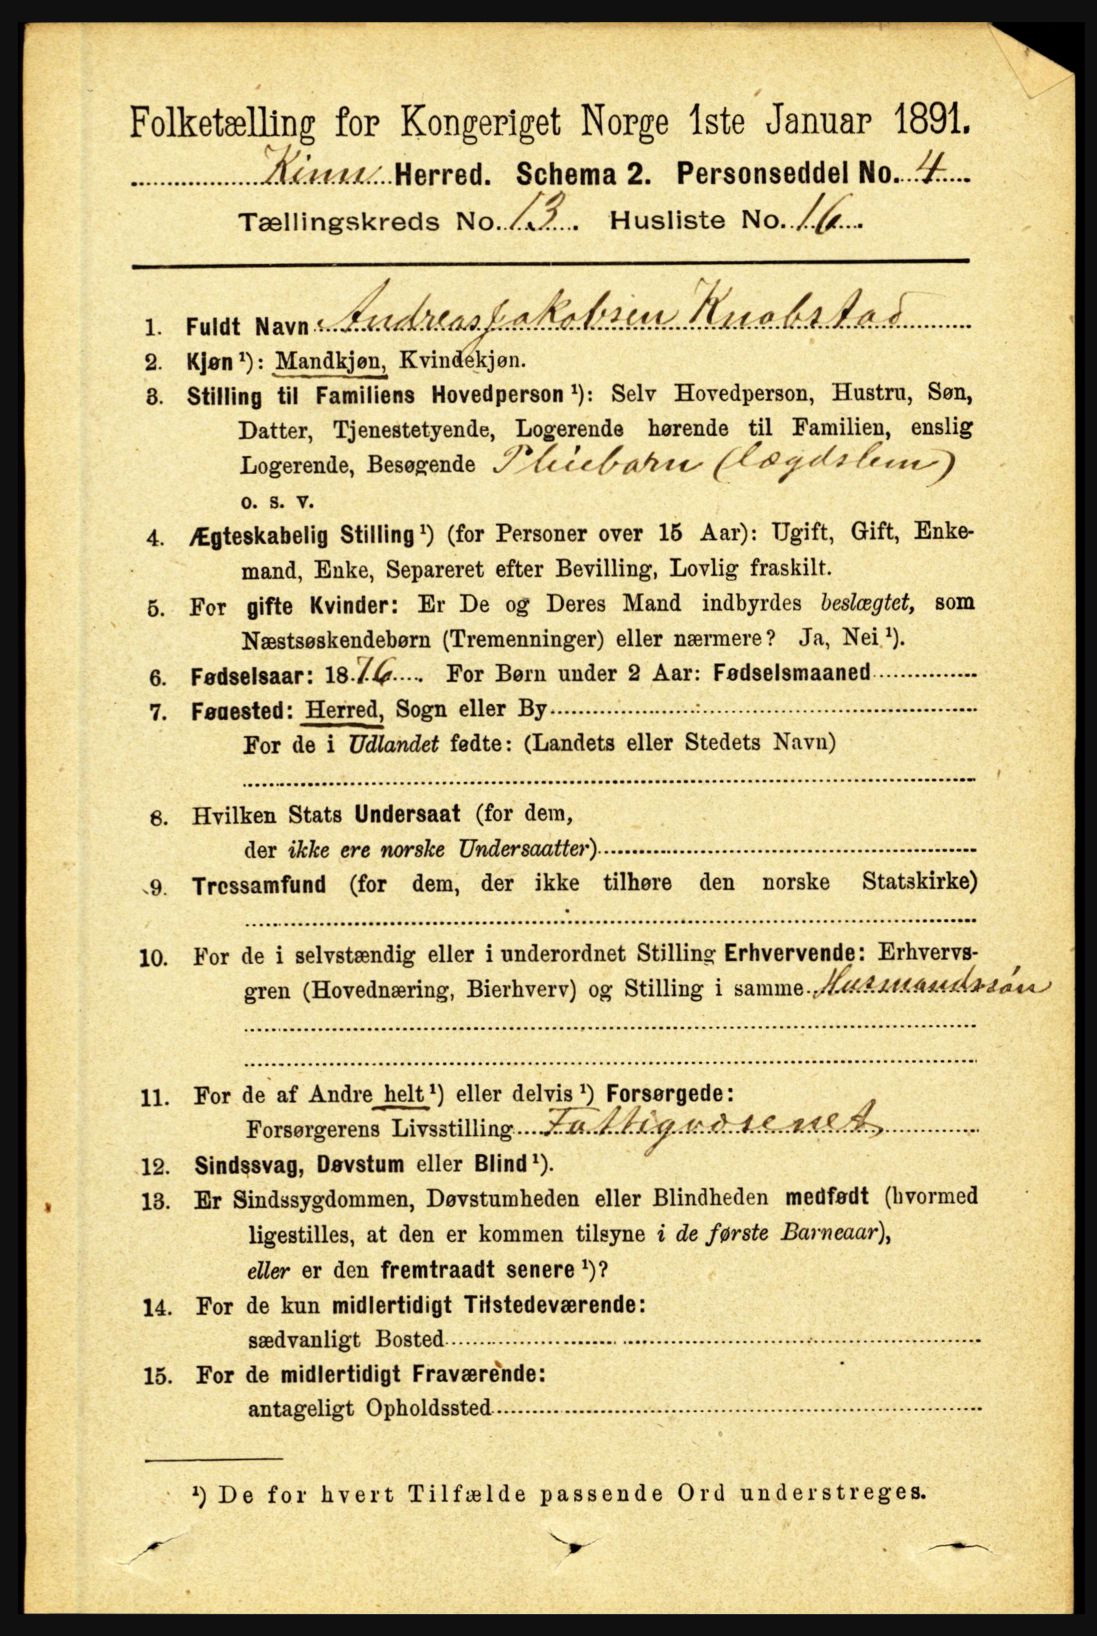 Folketælling for Kongeriget Norge 1ste Januar 1891.
Kinn Herred. Schema 2. Personseddel No. 4
Tællingskreds No. 13. Husliste No. 16.
1. Fuldt Navn Andreas Jakobsen Knabstad
2. Kjøn ¹): Mandkjøn, Kvindekjøn.
3. Stilling til Familiens Hovedperson ¹): Selv Hovedperson, Hustru, Søn,
Datter, Tjenestetyende, Logerende hørende til Familien, enslig
Logerende, Besøgende Pleiebarn (Lægdslem)
o. s. v.
4. Ægteskabelig Stilling ¹) (for Personer over 15 Aar): Ugift, Gift, Enke-
mand, Enke, Separeret efter Bevilling, Lovlig fraskilt.
5. For gifte Kvinder: Er De og Deres Mand indbyrdes beslægtet, som
Næstsøskendebørn (Tremenninger) eller nærmere? Ja, Nei ¹).
6. Fødselsaar: 1876. For Børn under 2 Aar: Fødselsmaaned
7. Fødested: Herred, Sogn eller By
For de i Udlandet fødte: (Landets eller Stedets Navn)
8. Hvilken Stats Undersaat (for dem,
der ikke ere norske Undersaatter)
9. Trossamfund (for dem, der ikke tilhøre den norske Statskirke)
10. For de i selvstændig eller i underordnet Stilling Erhvervende: Erhvervs-
gren (Hovednæring, Bierhverv) og Stilling i samme Husmandssøn
11. For de af Andre helt ¹) eller delvis ¹) Forsørgede:
Forsørgerens Livsstilling Fattigvæsenet
12. Sindssvag, Døvstum eller Blind ¹).
13. Er Sindssygdommen, Døvstumheden eller Blindheden medfødt (hvormed
ligestilles, at den er kommen tilsyne i de første Barneaar),
eller er den fremtraadt senere ¹)?
14. For de kun midlertidigt Tilstedeværende:
sædvanligt Bosted
15. For de midlertidigt Fraværende:
antageligt Opholdssted
¹) De for hvert Tilfælde passende Ord understreges.